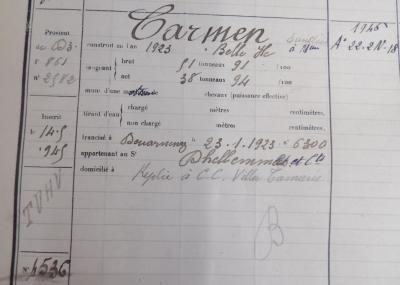 Carmen
1945
Provient
construit en l'an 1923 à Belle Ile
à 18 m
A° 22-2 N° 18
de D3
f° 861
n° 2982
jaugeant
brut 51 tonneaux 91 /100
net 38 tonneaux 94 /100
muni d'une
chevaux (puissance effective)
tirant d'eau
chargé mètres centimètres.
non chargé mètres centimètres.
Inscrit
francisé à Douarnenez le 23.1.1923 n° 6300
le 14-5
1945
appartenant au Sr Dhellemmes et Cie
domicilié à
Replié à C.C. Villa
TVHV
N° 4536